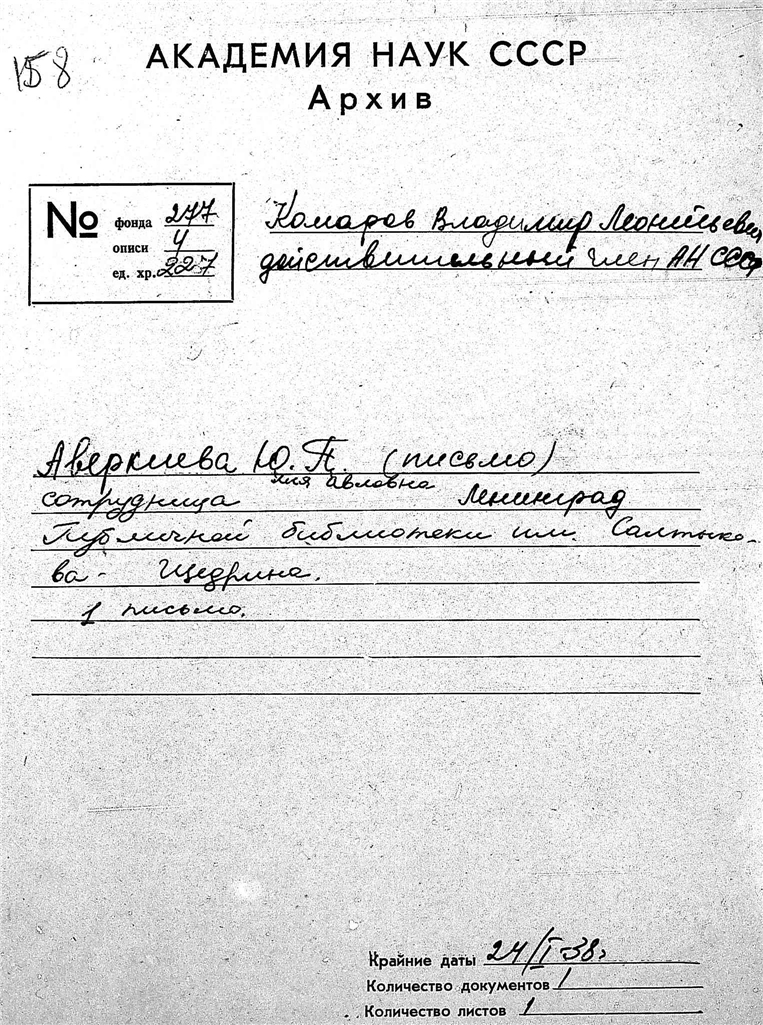 158
АКАДЕМИЯ НАУК СССР
Архив
№ фонда 277
описи 4
ед. хр. 227
Комаров Владимир Леонтьевич
действительный член АН СССР
Аверкиева Ю.П. (письмо)
лия авловна
сотрудница Ленинград
Публичной библиотеки им. Салтыко-
ва - Щедрина.
1 письмо.
Крайние даты 24/I-38г
Количество документов 1
Количество листов 1